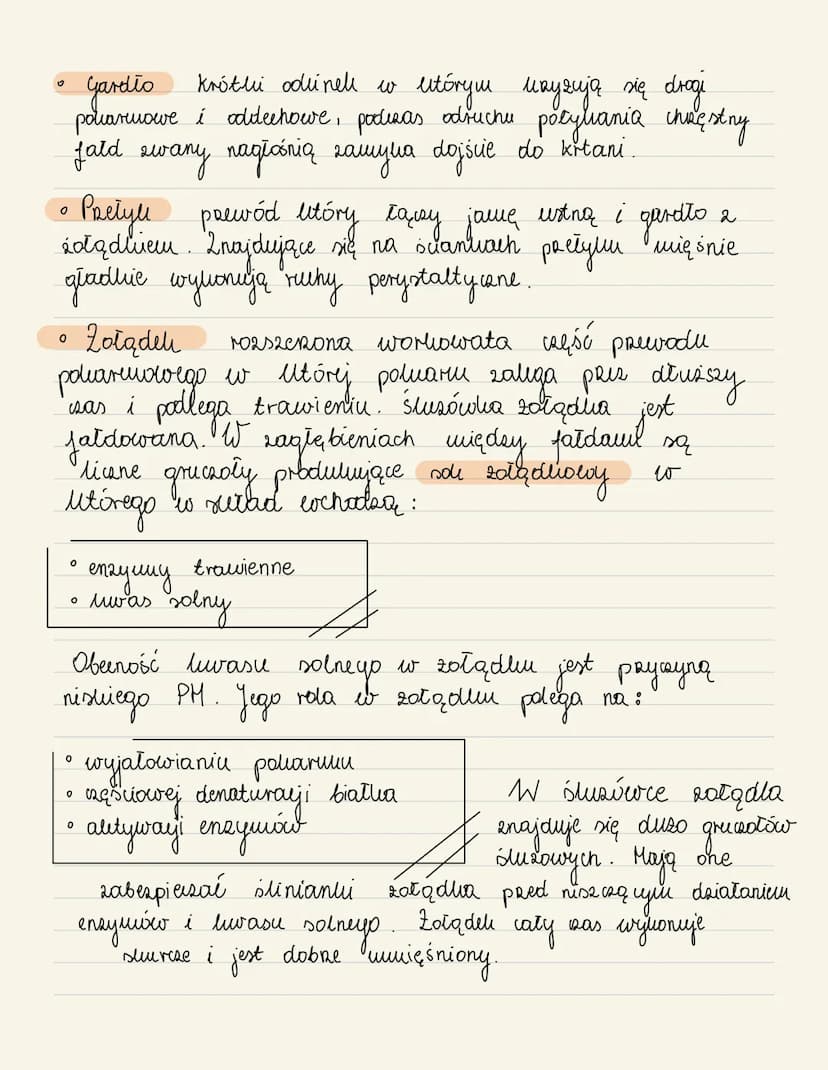 • Gardło krótki odcinek w którym krzyżują się drogi
pokarmowe i oddechowe, podczas odruchu połykania chrzęstny
fałd zwany nagłośnią zamyka dojście do krtani.
• Przełyk przewód który łączy jamę ustną i gardło z
żołądkiem. Znajdujące się na ściankach przełyku mięśnie
gładkie wykonują ruchy perystaltyczne.
• Żołądek rozszerzona workowata część przewodu
pokarmowego w której pokarm zalega przez dłuższy
czas i podlega trawieniu. Śluzówka żołądka jest
fałdowana. W zagłębieniach między fałdami są
liczne gruczoły produkujące sok żołądkowy w
którego w skład wchodzą:
• enzymy trawienne
• kwas solny
Obecność kwasu solnego w żołądku jest przyczyną
niskiego PH. Jego rola w żołądku polega na:
• wyjałowianiu pokarmu
• częściowej denaturacji białka
• aktywacji enzymów
W śluzówce żołądka
znajduje się dużo gruczołów
śluzowych. Mają one
zabezpieczać ślinianki żołądka przed niszczącym działaniem
enzymów i kwasu solnego. Żołądek cały czas wykonuje
skurcze i jest dobrze umięśniony.